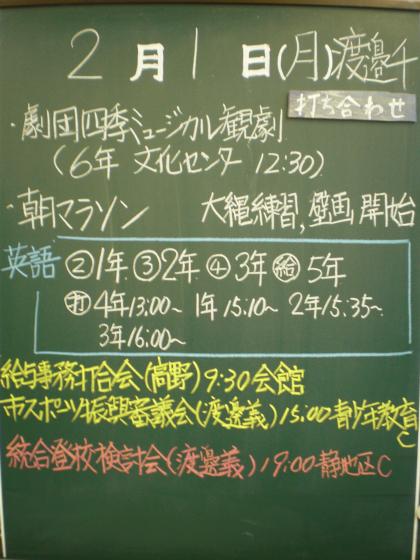 2月1日(月)渡邉千
打ち合わせ
・劇団四季ミュージカル観劇
(6年 文化センター 12:30)
・朝マラソン 大縄練習,壁画開始
英語 ②1年 ③2年 ④3年 ㊗5年
㊓4年13:00~ 1年15:10~ 2年15:35~
3年16:00~
給与事務打合会(高野)9:30会館
市スポーツ振興審議会(渡邉義)15:00青少年教育C
統合登校検討会(渡邉義)19:00静地区C